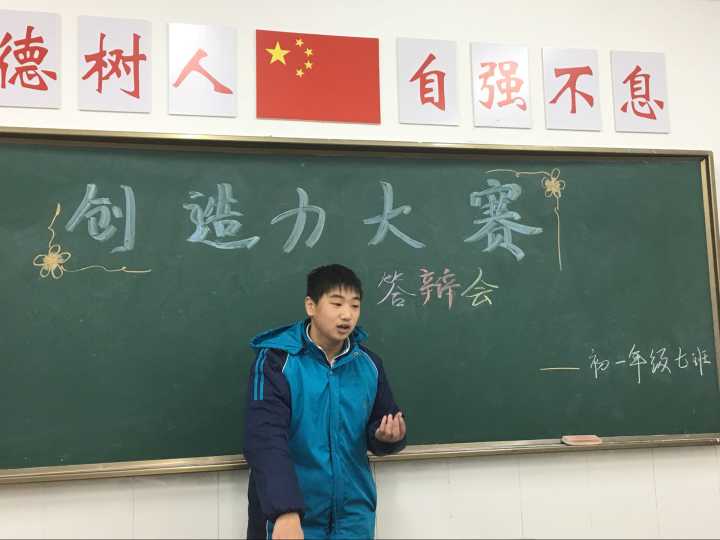 德树人 自强不息
创造力大赛
答辩会
——初一年级七班